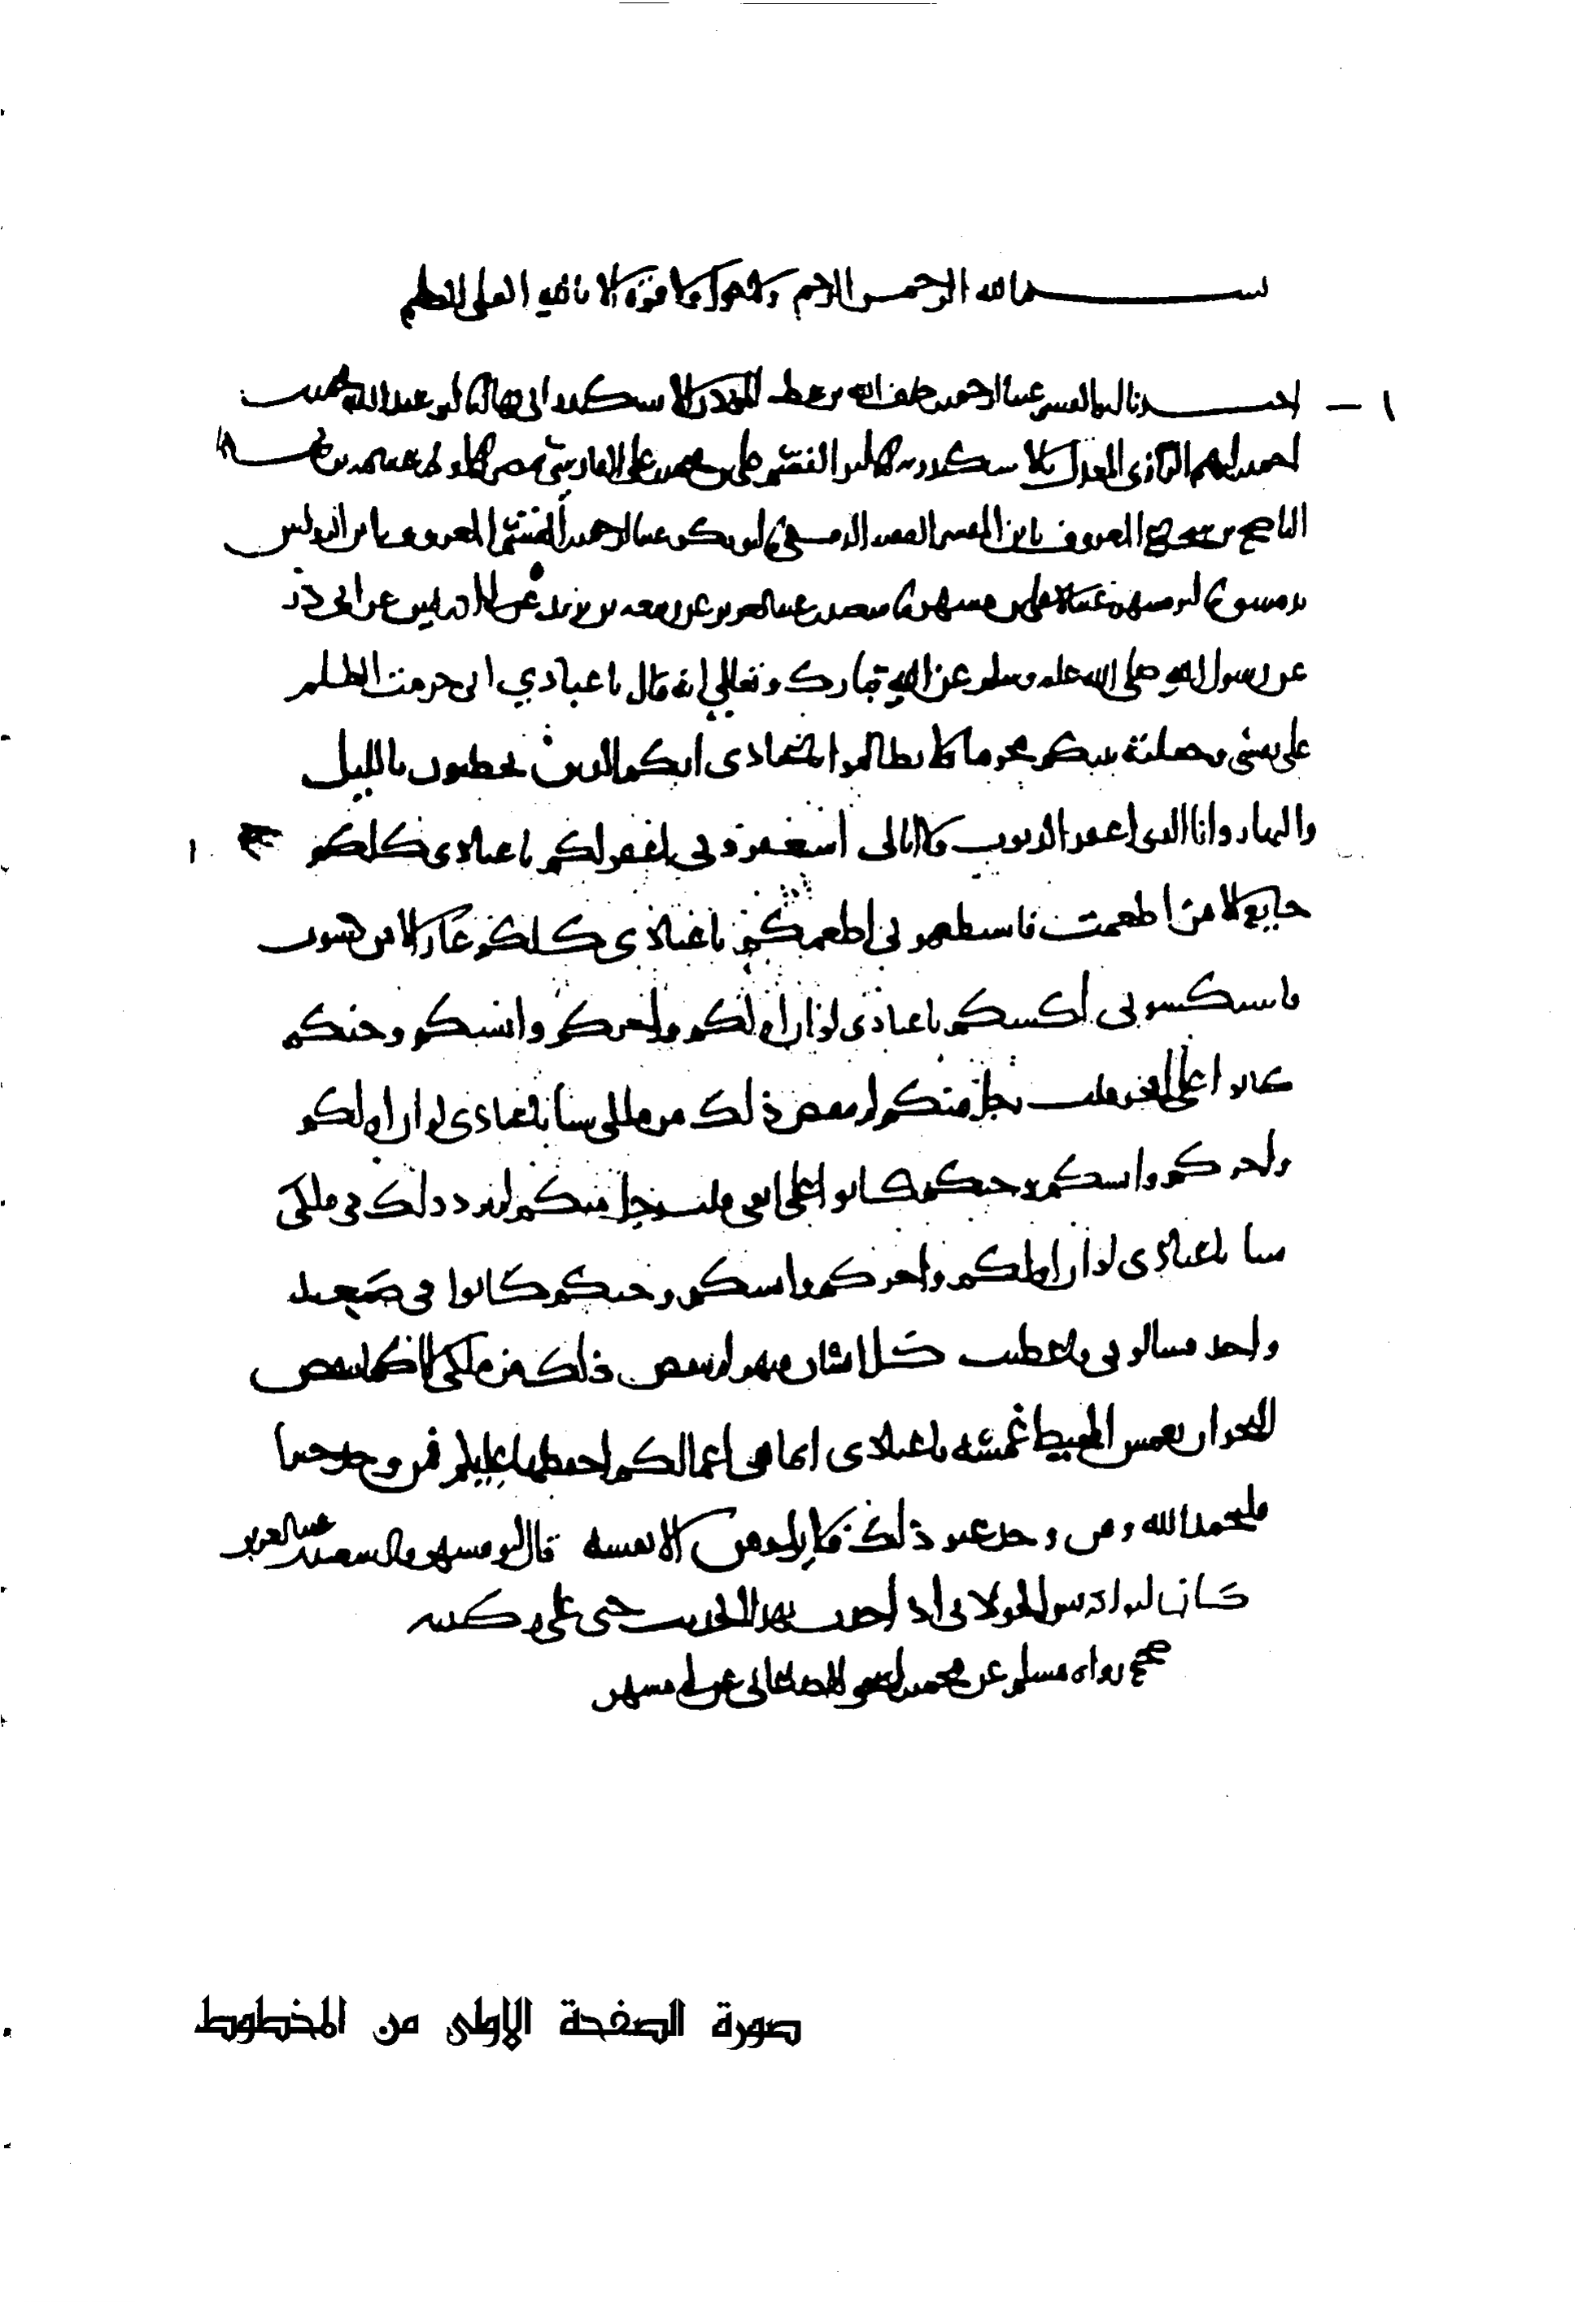 بسم الله الرحمن الرحيم ولا حول ولا قوة الا بالله العلي العظيم
١ — اخبرنا ابو القاسم عبد الرحمن خلف الله بن عطية المؤدب الاسكندراني بها ابو عبد الله محمد بن
احمد بن ابرهيم الرازي المعدل بالاسكندرية ابو القسم علي بن محمد بن علي الفارسي بمصر ابو احمد عبد الله بن محمد بن
الناصح بن شجاع المعروف بابن المفسر الفقيه الدمشقي ابو بكر عبد الرحمن بن القسم المعروف بابن الرواس
بدمشق ابو مسهر عبد الاعلى بن مسهر سعيد بن عبد العزيز عن ربيعة بن يزيد عن ابي ادريس عن ابي ذر
عن رسول الله صلى الله عليه وسلم عن الله تبارك وتعالى انه قال يا عبادي اني حرمت الظلم
على نفسي وجعلته بينكم محرما فلا تظالموا يا عبادي انكم الذين تخطئون بالليل
والنهار وانا الذي اغفر الذنوب ولا ابالي استغفروني اغفر لكم يا عبادي كلكم
جايع الا من اطعمت فاستطعموني اطعمكم يا عبادي كلكم عار الا من كسوت
فاستكسوني اكسكم يا عبادي لو ان اولكم واخركم وانسكم وجنكم
كانوا على افجر قلب رجل منكم لم ينقص ذلك من ملكي شيا يا عبادي لو ان اولكم
واخركم وانسكم وجنكم كانوا على اتقى قلب رجل منكم لم يزد ذلك في ملكي
شيا يا عبادي لو ان اولكم واخركم وانسكم وجنكم كانوا في صعيد
واحد فسالوني فاعطيت كل انسان منهم لم ينقص ذلك من ملكي الا كما ينقص
البحر ان يغمس المخيط غمسة يا عبادي انما هي اعمالكم احفظها عليكم فمن وجد خيرا
فليحمد الله ومن وجد غير ذلك فلا يلومن الا نفسه قال ابو مسهر قال سعيد بن عبد العزيز
كان ابو ادريس الخولاني اذا حدث بهذا الحديث جثى على ركبتيه
صحيح رواه مسلم عن محمد بن اسحق الصغاني عن ابي مسهر
صورة الصفحة الاولى من المخطوط